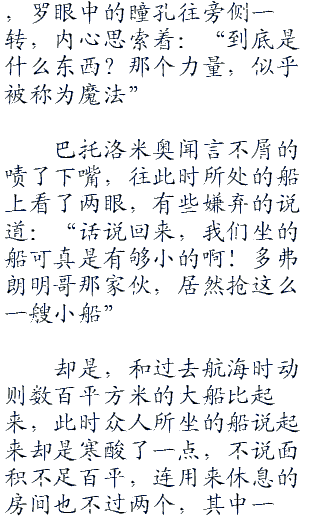 ，罗眼中的瞳孔往旁侧一
转，内心思索着：“到底是
什么东西？那个力量，似乎
被称为魔法”
巴托洛米奥闻言不屑的
啧了下嘴，往此时所处的船
上看了两眼，有些嫌弃的说
道：“话说回来，我们坐的
船可真是有够小的啊！多弗
朗明哥那家伙，居然抢这么
一艘小船”
却是，和过去航海时动
则数百平方米的大船比起
来，此时众人所坐的船说起
来却是寒酸了一点，不说面
积不足百平，连用来休息的
房间也不过两个，其中一